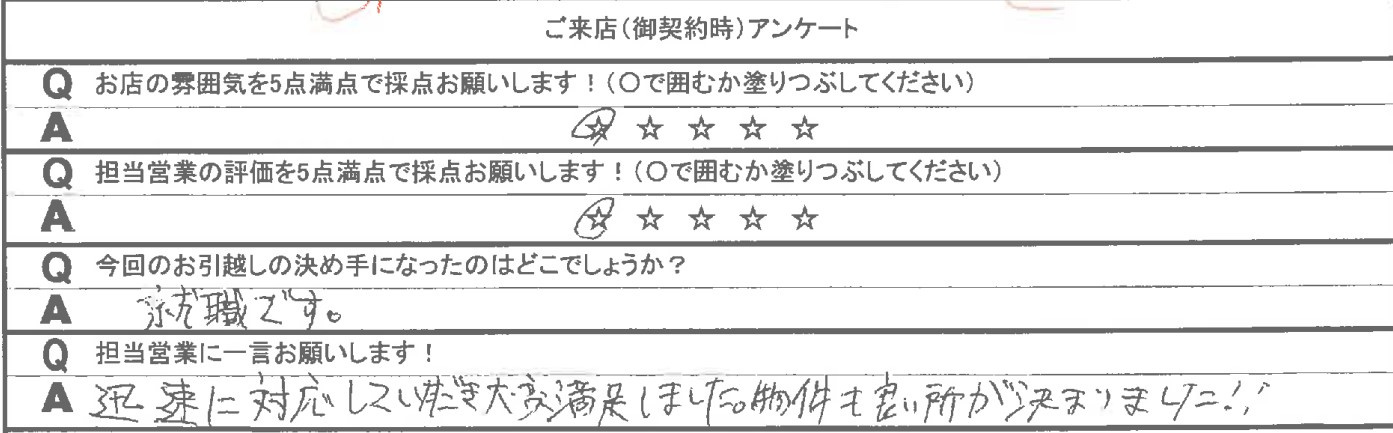 ご来店(御契約時)アンケート
Q お店の雰囲気を5点満点で採点お願いします！(〇で囲むか塗りつぶしてください)
A ☆ ☆ ☆ ☆ ☆
Q 担当営業の評価を5点満点で採点お願いします！(〇で囲むか塗りつぶしてください)
A ☆ ☆ ☆ ☆ ☆
Q 今回のお引越しの決め手になったのはどこでしょうか？
A 就職です。
Q 担当営業に一言お願いします！
A 迅速に対応していただき大変満足しました。物件も良い所が決まりました!!